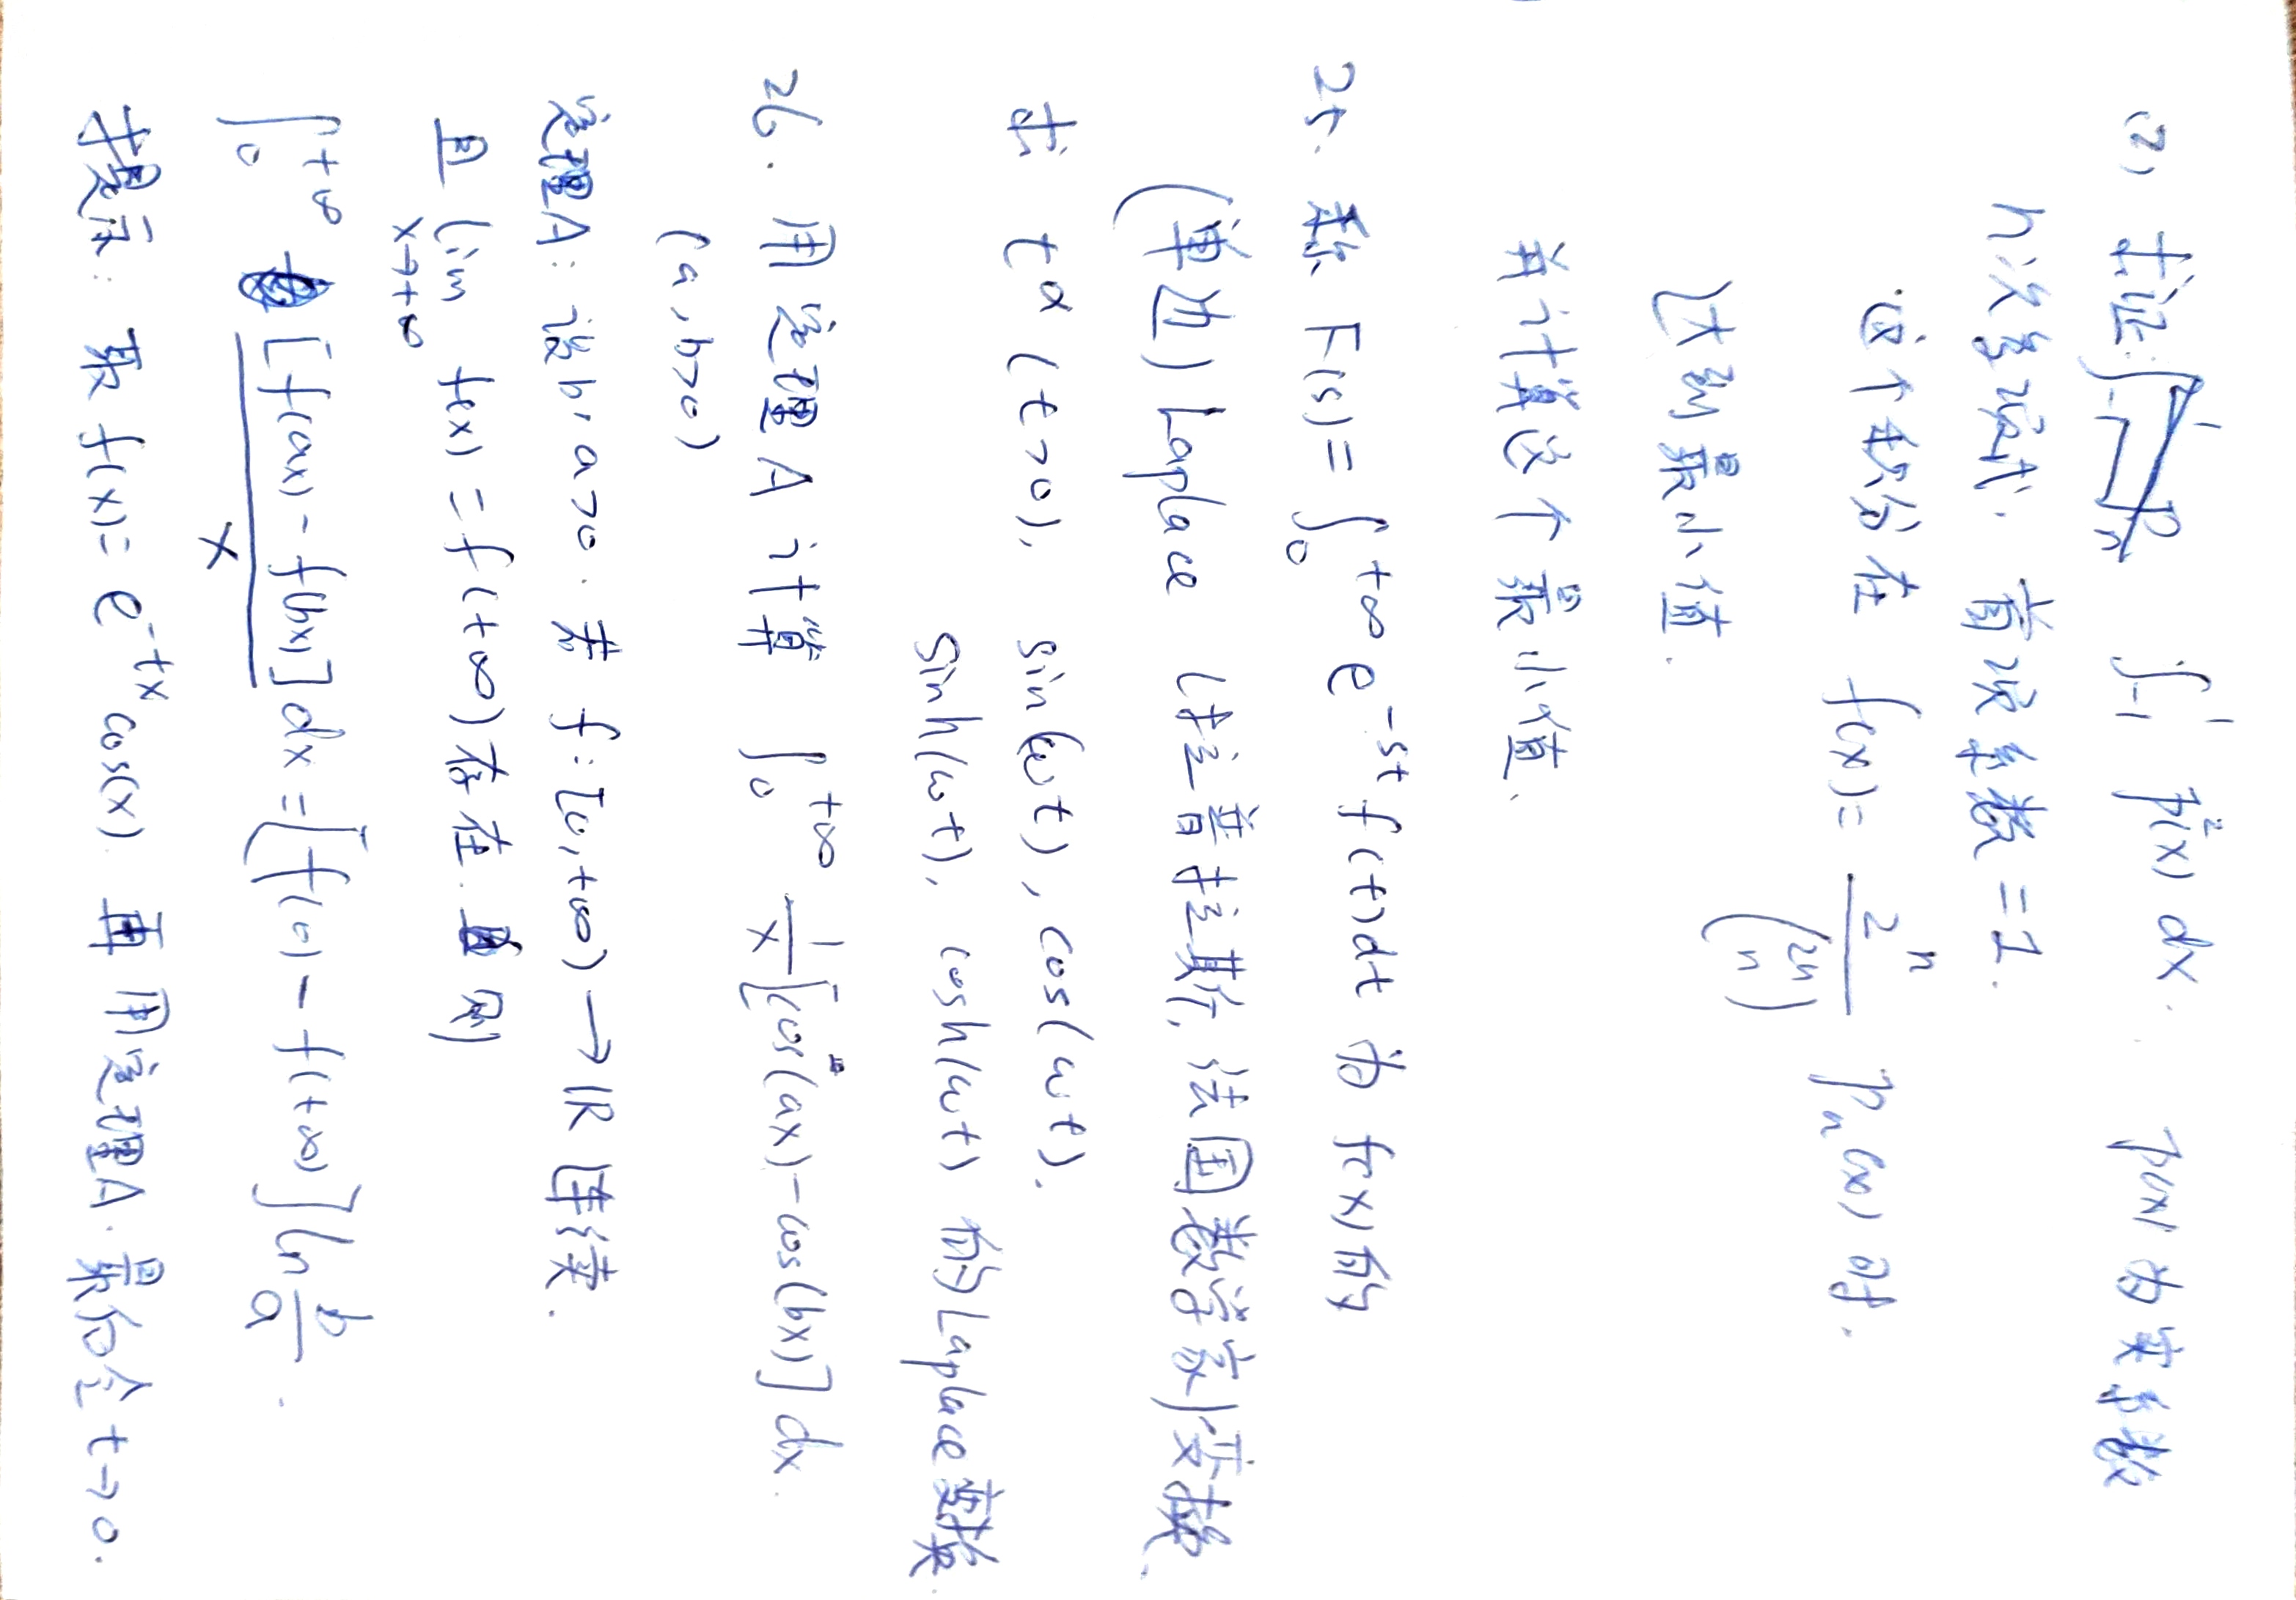 (2) 求证: ∫_{-1}^{1} p²(x) dx. p(x)为实系数
n次多项式, 首项系数 =1.
这个积分在 f(x)= \frac{2^n}{\binom{2n}{n}} p_n(x) 时.
达到最小值.
并计算这个最小值.
25. 称 F(s) = ∫_0^{+∞} e^{-st} f(t)dt 为 f(x)的
(单边) Laplace (拉普拉斯, 法国数学家) 变换.
求 t^α (t>0), sin(ωt), cos(ωt).
sinh(ωt), cosh(ωt) 的Laplace变换.
26. 用定理A计算 ∫_0^{+∞} \frac{1}{x}[cos(ax)-cos(bx)] dx.
(a,b>0)
定理A: 设b,a>0. 若 f:[0,+∞) → ℝ 连续.
且 lim_{x→+∞} f(x) = f(+∞)存在. 则
∫_0^{+∞} \frac{[f(ax)-f(bx)]}{x} dx = [f(0) - f(+∞)] ln \frac{b}{a}.
提示: 取 f(x)= e^{-tx} cos(x). 再用定理A. 最后令 t→0.